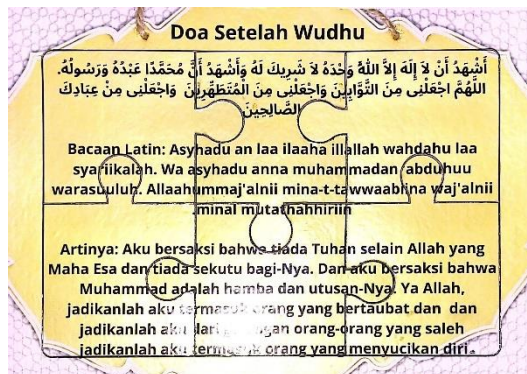 Doa Setelah Wudhu
أَشْهَدُ أَنْ لاَ إِلَهَ إِلاَّ اللهُ وَحْدَهُ لاَ شَرِيكَ لَهُ وَأَشْهَدُ أَنَّ مُحَمَّدًا عَبْدُهُ وَرَسُولُهُ.
اللَّهُمَّ اجْعَلْنِى مِنَ التَّوَّابِينَ وَاجْعَلْنِى مِنَ الْمُتَطَهِّرِينَ وَاجْعَلْنِى مِنْ عِبَادِكَ
الصَّالِحِينَ
Bacaan Latin: Asyhadu an laa ilaaha illallah wahdahu laa
syariikalah. Wa asyhadu anna muhammadan 'abduhuu
warasuuluh. Allaahummaj'alnii mina-t-tawwaabiina waj'alnii
.minal mutathahhiriin
Artinya: Aku bersaksi bahwa tiada Tuhan selain Allah yang
Maha Esa dan tiada sekutu bagi-Nya. Dan aku bersaksi bahwa
Muhammad adalah hamba dan utusan-Nya. Ya Allah,
jadikanlah aku termasuk orang yang bertaubat dan dan
jadikanlah aku dari orang-orang yang saleh
jadikanlah aku termasuk orang yang menyucikan diri.